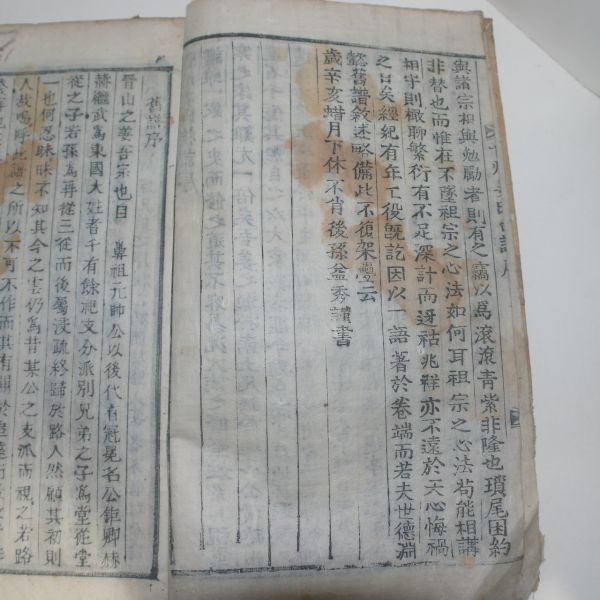 與諸宗相與勉勵者則有之竊以爲滾滾青紫非隆也瑣尾困約
非替也而惟在不墜祖宗之心法如何耳祖宗之心法苟能相講
相守則椒聊繁衍有不足深計而迓祜兆祥亦不遠於天心悔禍
之日矣經紀有年工役旣訖因以一語著於卷端而若夫世德淵
懿舊譜敘述略備此不復架疊云
歲辛亥蜡月下休不肖後孫益秀謹書
舊譜序
晉山之姜吾宗也自 鼻祖元帥公以後代有冠冕名公鉅卿赫
赫繼武爲東國大姓者千有餘祀支分派別兄弟之子爲堂從堂
從之子若孫爲再從三從而後屬浸疏終歸於路人然顧其初則
一也何忍昧昧不知其今之雲仍爲昔某公之支派而視之若路
人哉嗚呼此譜之所以不可不作而其有關於